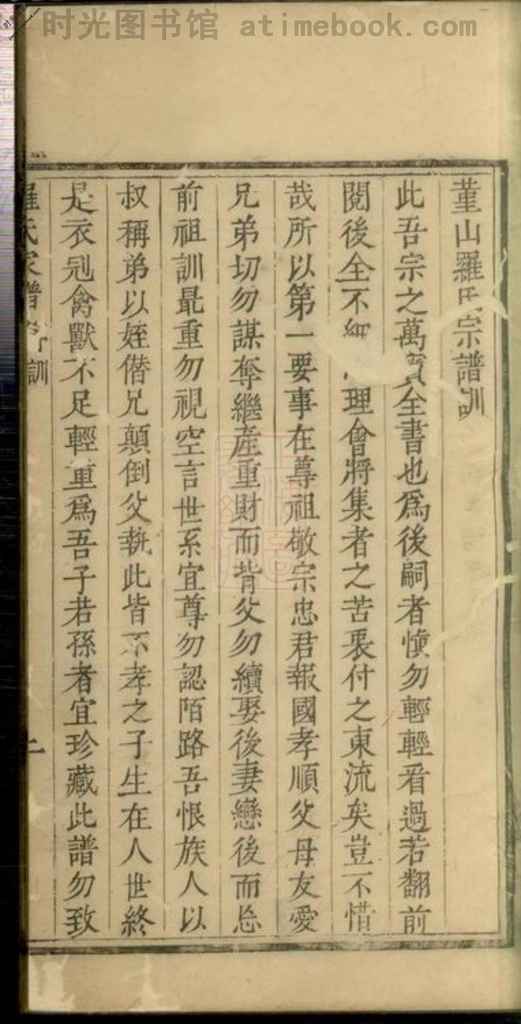 时光图书馆 atimebook.com
董山羅氏宗譜訓
此吾宗之萬寳全書也爲後嗣者愼勿輕輕看過若翻前
閱後全不細 理會將集者之苦衷付之東流矣豈不惜
哉所以第一要事在尊祖敬宗忠君報國孝順父母友愛
兄弟切勿謀奪繼產重財而背父勿續娶後妻戀後而忘
前祖訓最重勿視空言世系宜尊勿認陌路吾恨族人以
叔稱弟以姪僭兄顛倒父執此皆不孝之子生在人世終
是衣冠禽獸不足輕重爲吾子若孫者宜珍藏此譜勿致
羅氏家譜 訓